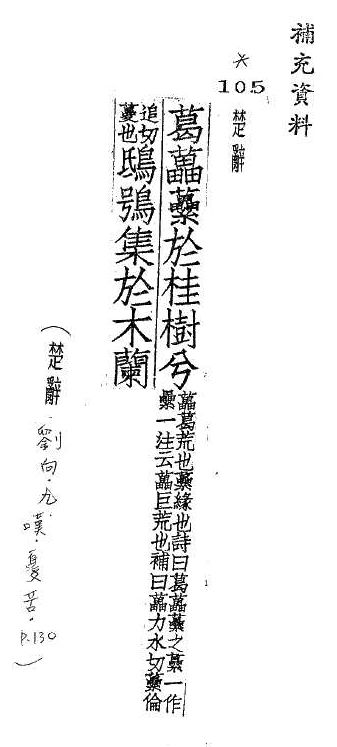 補充資料
*
105
楚辭
葛藟虆於桂樹兮
藟葛荒也虆緣也詩曰葛藟虆之虆一作
虆一注云藟巨荒也補曰藟力水切虆倫
追切
蔓也
鴟鴞集於木蘭
(楚辭．劉向．九．嘆．憂苦．P.130)